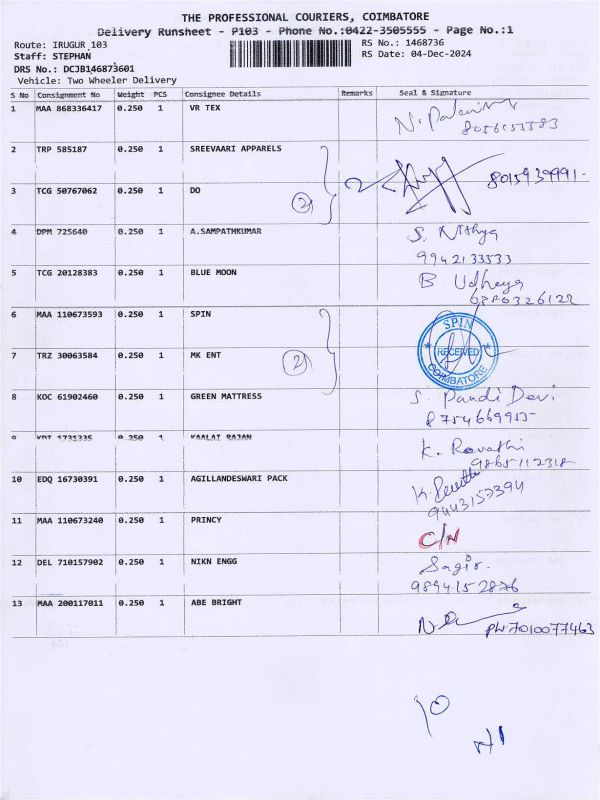 THE PROFESSIONAL COURIERS, COIMBATORE
Delivery Runsheet - P103 - Phone No.:0422-3505555 - Page No.:1
Route: IRUGUR 103 RS No.: 1468736
Staff: STEPHAN RS Date: 04-Dec-2024
DRS No.: DCJB146873601
Vehicle: Two Wheeler Delivery
S No Consignment No Weight PCS Consignee Details Remarks Seal & Signature
1 MAA 868336417 0.250 1 VR TEX
8056153583
2 TRP 585187 0.250 1 SREEVAARI APPARELS
8015939991.
3 TCG 50767062 0.250 1 DO 2
4 DPM 725640 0.250 1 A.SAMPATHKUMAR S. Nithya
9942133533
5 TCG 20128383 0.250 1 BLUE MOON B Udhaya
6380326122
6 MAA 110673593 0.250 1 SPIN SPIN
RECEIVED
COIMBATORE
7 TRZ 30063584 0.250 1 MK ENT 2
8 KOC 61902460 0.250 1 GREEN MATTRESS S. Pandi Devi
8754669955
9 KDT 1731335 0.250 1 KAALAI RAJAN K. Revathi
9865112318
10 EDQ 16730391 0.250 1 AGILLANDESWARI PACK K.
9443157394
11 MAA 110673240 0.250 1 PRINCY C/N
12 DEL 710157902 0.250 1 NIKN ENGG Sagir.
9894152876
13 MAA 200117011 0.250 1 ABE BRIGHT
PH 7010077463